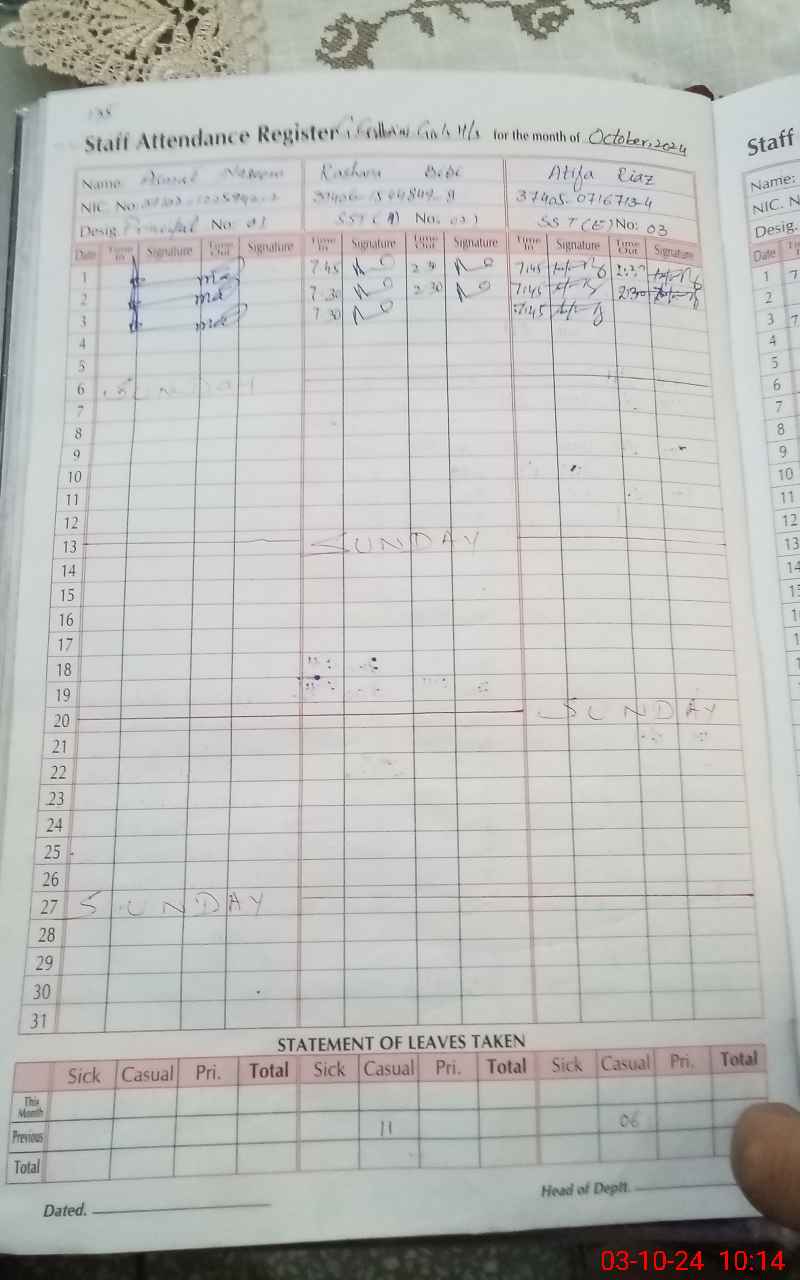 Staff Attendance Register Girls H/s for the month of October, 2024
Name: Naseem Kashara Bibi Atifa Riaz
NIC. No: 37405-0716713-4
Desig. Principal No: 01 SST (A) No: 02 SST (E) No: 03
Date Time In Signature Time Out Signature Time In Signature Time Out Signature Time In Signature Time Out Signature
1 7 45 2 30 7:45 2:30
2 7 30 2 30 7:45 2:30
3 7 30 7:45
4
5
6 SUNDAY
7
8
9
10
11
12
13 SUNDAY
14
15
16
17
18
19
20 SUNDAY
21
22
23
24
25
26
27 SUNDAY
28
29
30
31
STATEMENT OF LEAVES TAKEN
Sick Casual Pri. Total Sick Casual Pri. Total Sick Casual Pri. Total
This Month
Previous 11 06
Total
Dated. Head of Deptt.
Staff
Name:
NIC. N
Desig.
Date
1 7
2
3 7
4
5
6
7
8
9
10
11
12
13
03-10-24 10:14